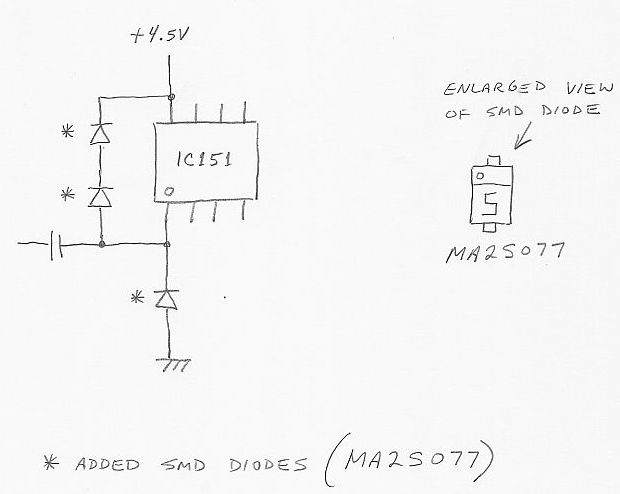 +4.5V
ENLARGED VIEW
OF SMD DIODE
*
IC151
*
S
MA2S077
*
* ADDED SMD DIODES (MA2S077)